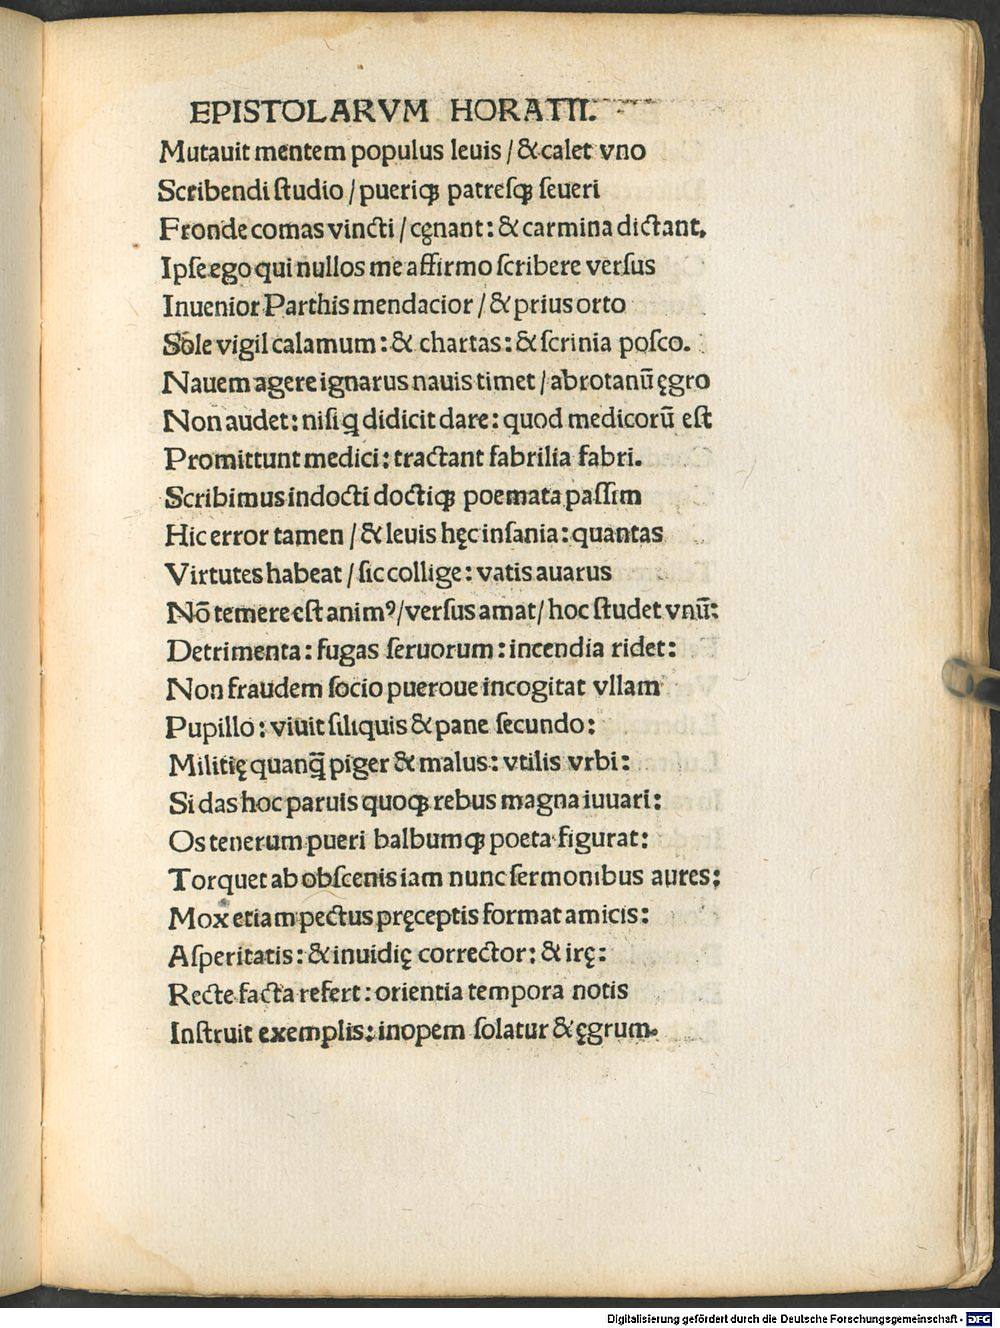 EPISTOLARVM HORATII.
Mutauit mentem populus leuis / & calet vno
Scribendi ſtudio / pueriqꝫ patreſqꝫ ſeueri
Fronde comas vincti / cęnant: & carmina dictant.
Ipſe ego qui nullos me affirmo ſcribere verſus
Inuenior Parthis mendacior / & prius orto
Sole vigil calamum: & chartas: & ſcrinia poſco.
Nauem agere ignarus nauis timet / abrotanū ęgro
Non audet: niſi q̄ didicit dare: quod medicorū eſt
Promittunt medici: tractant fabrilia fabri.
Scribimus indocti doctiqꝫ poemata paſſim
Hic error tamen / & leuis hęc inſania: quantas
Virtutes habeat / ſic collige: vatis auarus
Nō temere eſt animꝰ / verſus amat / hoc ſtudet vnū:
Detrimenta: fugas ſeruorum: incendia ridet:
Non fraudem ſocio pueroue incogitat vllam
Pupillo: viuit ſiliquis & pane ſecundo:
Militię quanq̄ piger & malus: vtilis vrbi:
Si das hoc paruis quoqꝫ rebus magna iuuari:
Os tenerum pueri balbumqꝫ poeta figurat:
Torquet ab obſcenis iam nunc ſermonibus aures:
Mox etiam pectus pręceptis format amicis:
Aſperitatis: & inuidię corrector: & irę:
Recte facta refert: orientia tempora notis
Inſtruit exemplis: inopem ſolatur & ęgrum.
Digitalisierung gefördert durch die Deutsche Forschungsgemeinschaft - DFG